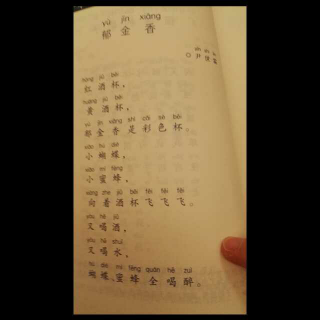 yù jīn xiāng
郁金香
○尹世
hóng jiǔ bēi
红酒杯，
huáng jiǔ bēi
黄酒杯，
yù jīn xiāng shì cǎi sè bēi
郁金香是彩色杯。
xiǎo hú dié
小蝴蝶，
xiǎo mì fēng
小蜜蜂，
xiàng zhe jiǔ bēi fēi fēi fēi
向着酒杯飞飞飞。
yòu hē jiǔ
又喝酒，
yòu hē shuǐ
又喝水，
hú dié mì fēng quán hē zuì
蝴蝶、蜜蜂全喝醉。